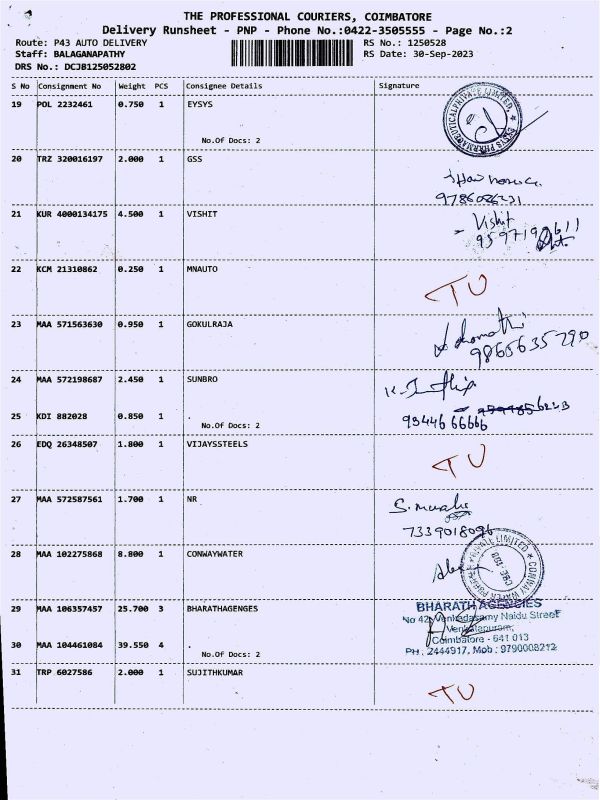 THE PROFESSIONAL COURIERS, COIMBATORE
Delivery Runsheet - PNP - Phone No.:0422-3505555 - Page No.:2
Route: P43 AUTO DELIVERY RS No.: 1250528
Staff: BALAGANAPATHY RS Date: 30-Sep-2023
DRS No.: DCJB125052802
S No Consignment No Weight PCS Consignee Details Signature
19 POL 2232461 0.750 1 EYSYS
No.Of Docs: 2
20 TRZ 320016197 2.000 1 GSS
21 KUR 4000134175 4.500 1 VISHIT
Vishit
22 KCM 21310862 0.250 1 MNAUTO
TU
23 MAA 571563630 0.950 1 GOKULRAJA
9865635290
24 MAA 572198687 2.450 1 SUNBRO
25 KDI 882028 0.850 1 .
No.Of Docs: 2
93446 66666
26 EDQ 26348507 1.800 1 VIJAYSSTEELS
TU
27 MAA 572587561 1.700 1 NR
28 MAA 102275868 8.800 1 CONWAYWATER
29 MAA 106357457 25.700 3 BHARATHAGENGES
BHARATH AGENCIES
No 42, Venkadasamy Naidu Street
Venkatapuram,
Coimbatore - 641 013
PH : 2444917, Mob : 9790008212
30 MAA 104461084 39.550 4 .
No.Of Docs: 2
31 TRP 6027586 2.000 1 SUJITHKUMAR
TU